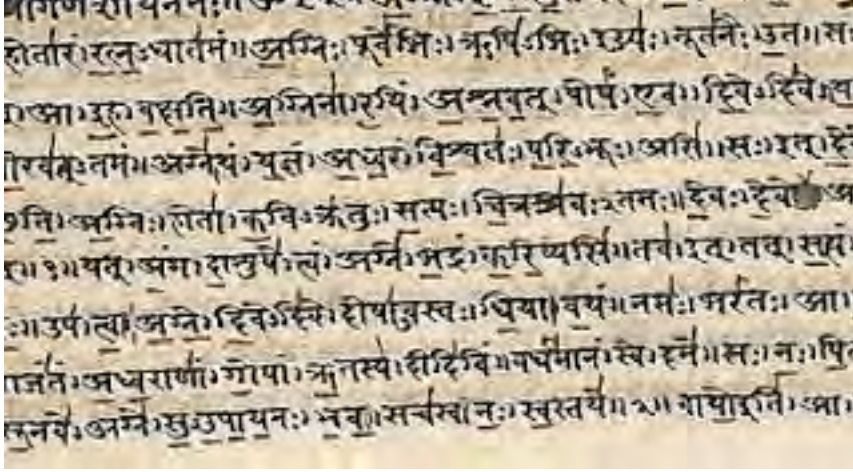 गणेशायनमः॥
होता॑रं।र॒त्न॒ऽधात॑मं॥अ॒ग्निः।पूर्वे॑भिः।ऋषि॑ऽभिः।ईड्यः॑।नूत॑नैः।उ॒त॥सः
आ।इ॒ह।व॒क्ष॒ति॒॥अ॒ग्निना॑।र॒यिं।अ॒श्न॒व॒त्।पोषं॑।ए॒व।दि॒वेऽदि॑वे॥य
वी॒रव॑त्ऽतमं॥अग्ने॑।यं।य॒ज्ञं।अ॒ध्व॒रं।वि॒श्वतः॑।प॒रि॒ऽभूः।असि॑॥सः।इत्।दे॒
ति॒।अ॒ग्निः।होता॑।क॒विऽक्र॑तुः।स॒त्यः।चि॒त्रश्र॑वःऽतमः॥दे॒वः।दे॒वे आ
॥१॥यत्।अं॒ग।दा॒शुषे॑।त्वं।अग्ने॑।भ॒द्रं।क॒रि॒ष्यसि॑॥तव॑।इत्।तत्।स॒त्यं
ः॥उप॑।त्वा॒।अ॒ग्ने॒।दि॒वेऽदि॑वे।दोषा॑ऽवस्तः।धि॒या।व॒यं॥नमः॑।भरं॑तः।आ।
राजं॑तं।अ॒ध्व॒राणां॑।गो॒पां।ऋ॒तस्य॑।दीदि॑विं॥वर्ध॑मानं।स्वे।दमे॑॥सः।नः॒।पि॒
सू॒नवे॑।अग्ने॑।सु॒ऽउ॒पा॒य॒नः।भ॒व॒॥सच॑स्व।नः॒।स्व॒स्तये॑॥२॥वायो॒इति॑।आ।